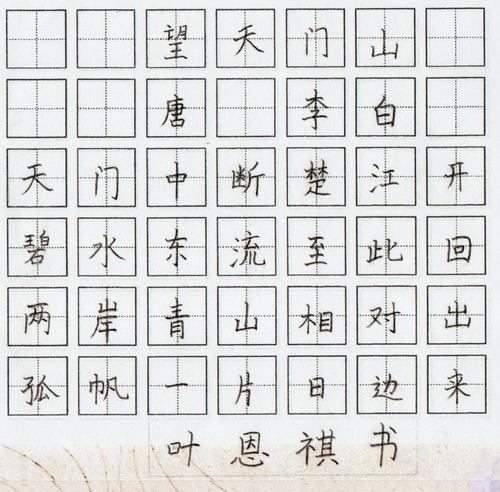 望天门山
唐 李白
天门中断楚江开
碧水东流至此回
两岸青山相对出
孤帆一片日边来
叶恩祺书